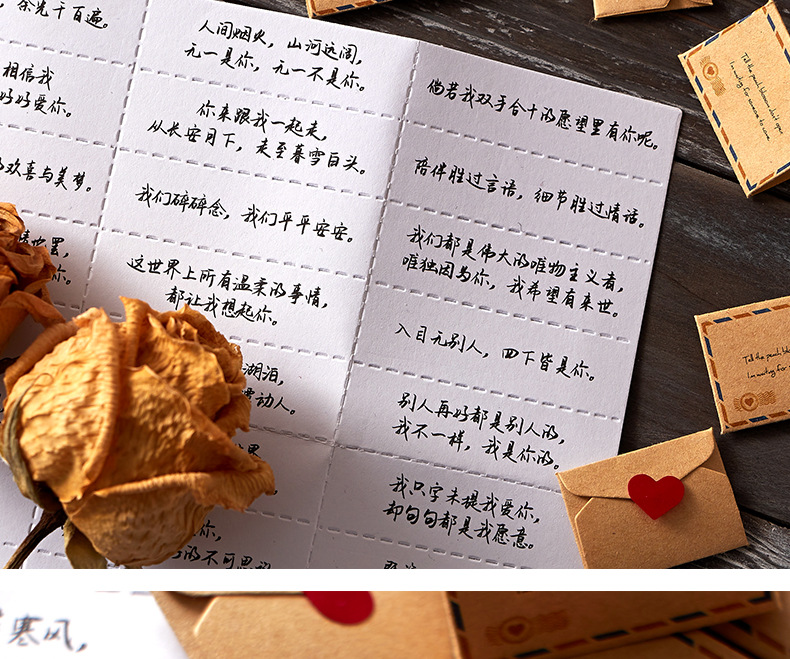 余光千百遍。
相信我
好好爱你。
欢喜与美梦。
人间烟火，山河远阔，
无一是你，无一不是你。
你来跟我一起走，
从长安月下，走至暮雪白头。
我们碎碎念，我们平平安安。
这世界上所有温柔的事情，
都让我想起你。
湖泊，
动人。
你，
的不可思
倘若我双手合十的愿望里有你呢。
陪伴胜过言语，细节胜过情话。
我们都是伟大的唯物主义者，
唯独因为你，我希望有来世。
入目无别人，四下皆是你。
别人再好都是别人的，
我不一样，我是你的。
我只字未提我爱你，
却句句都是我愿意。
Tell the peach blossom don't open
I'm waiting for someone to come
Tell the peach
I'm waiting for
寒风，